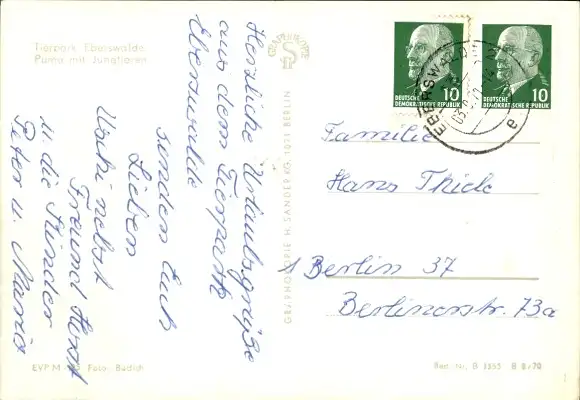 Tierpark Eberswalde
Puma mit Jungtieren
Herzliche Urlaubsgrüße
aus dem Tierpark
Eberswalde
senden Euch
Lieben
nebst
Freund Horst
u. die Kinder
Peter u. Maria
GRAPHOKOPIE
GRAPHOKOPIE H. SANDER KG, 1034 BERLIN
EBERSWALDE
e
10
DEUTSCHE
DEMOKRATISCHE REPUBLIK
10
DEUTSCHE
DEMOKRATISCHE REPUBLIK
Familie
Hans Thiele
Berlin 37
Berlinerstr. 73a
EVP M Foto: Badich
Best. Nr. B 3355 B 8/70